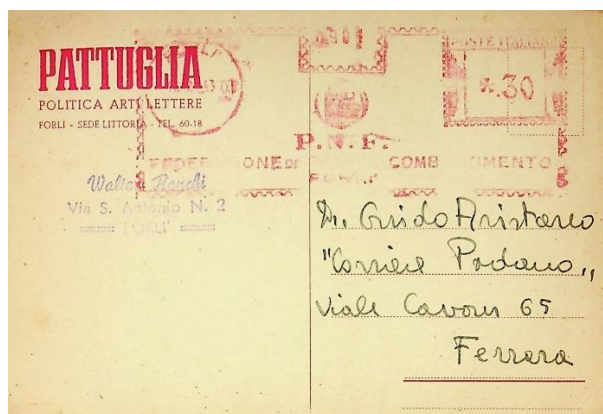 PATTUGLIA
POLITICA ARTI LETTERE
FORLÌ - SEDE LITTORIA - TEL. 60-18
Walter Ronchi
Via S. Antonio N. 2
FORLI'
POSTE ITALIANE
*.30
P. N. F.
COMBATTIMENTO
Dr. Guido Aristarco
"Corriere Padano„
Viale Cavour 65
Ferrara